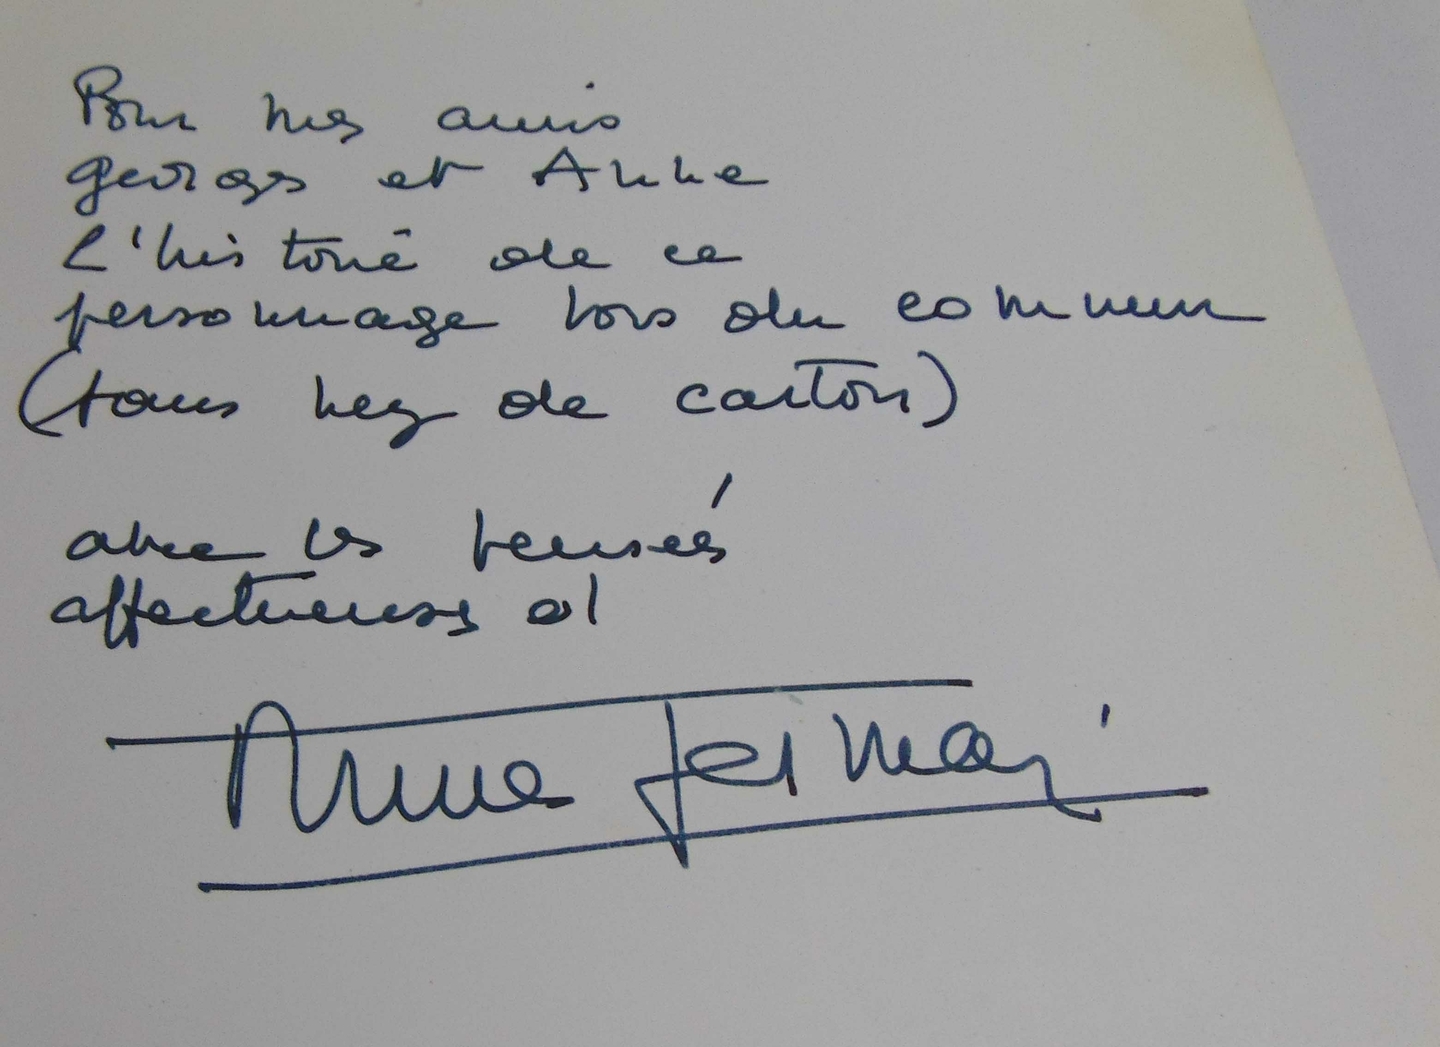 Pour mes amis
Georges et Anne
L'histoire de ce
personnage hors du commun
(sans nez de carton)
avec les pensées
affectueuses d'
Anne